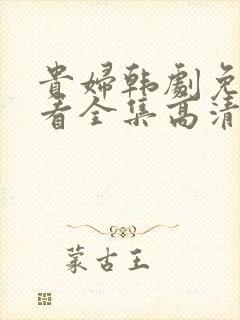 貴婦韩劇免
看全集高清
蒙古王